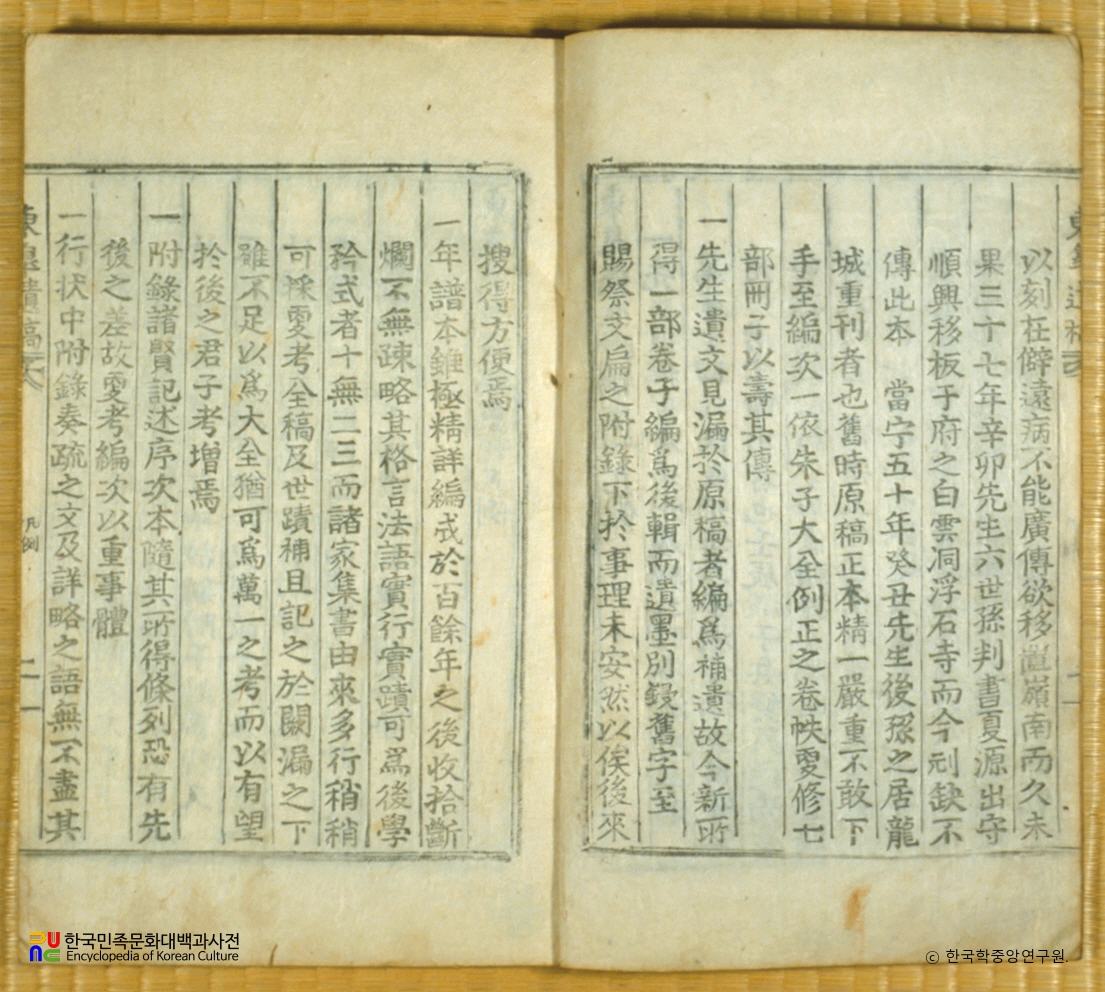 以刻在僻遠病不能廣傳欲移置嶺南而久未
果三十七年辛卯先生六世孫判書夏源出守
順興移板于府之白雲洞浮石寺而今刓缺不
傳此本 當宁五十年癸丑先生後孫之居龍
城重刊者也舊時原稿正本精一嚴重不敢下
手至編次一依朱子大全例正之卷帙更修七
部冊子以壽其傳
一先生遺文見漏於原稿者編爲補遺故今新所
得一部卷子編爲後輯而遺墨別鋟舊字至
賜祭文扁之附錄下於事理未安然以俟後來
搜得方便焉
一年譜本雖極精詳編成於百餘年之後收拾斷
爛不無疎略其格言法語實行實蹟可爲後學
矜式者十無二三而諸家集書由來多行稍稍
可採更考全稿及世蹟補且記之於闕漏之下
雖不足以爲大全猶可爲萬一之考而以有望
於後之君子考增焉
一附錄諸賢記述序次本隨其所得條列恐有先
後之差故更考編次以重事體
一行状中附錄奏疏之文及詳略之語無不盡其
凡例
二一
한국민족문화대백과사전
Encyclopedia of Korean Culture
© 한국학중앙연구원.